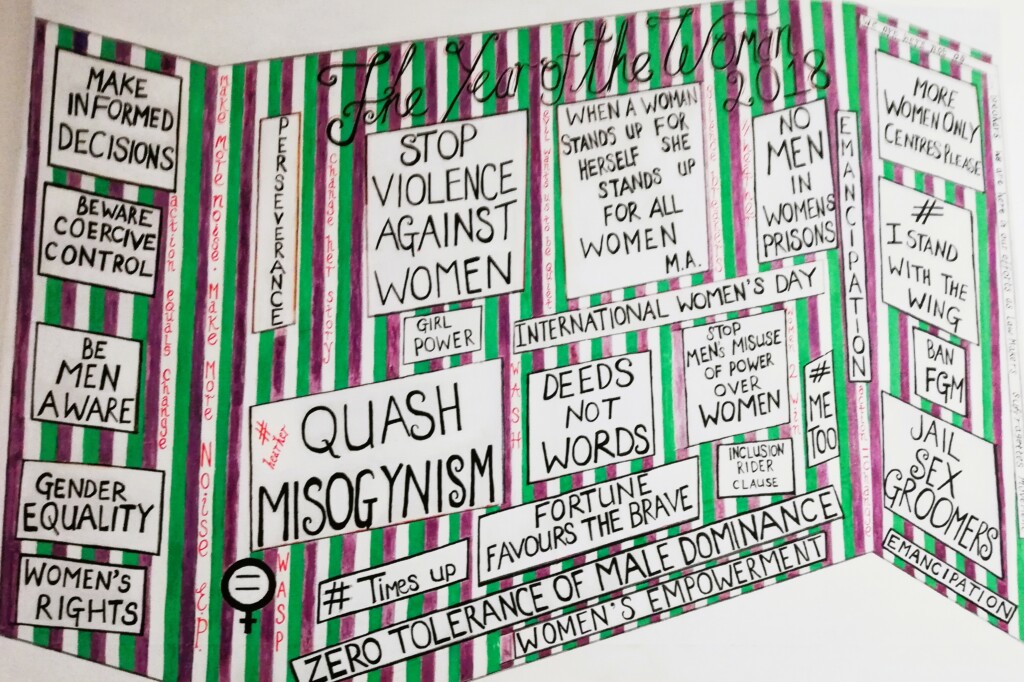 The Year of the Woman
2018
MAKE
INFORMED
DECISIONS
BEWARE
COERCIVE
CONTROL
BE
MEN
AWARE
GENDER
EQUALITY
WOMEN'S
RIGHTS
action equals change
Make more noise. Make More Noise E.P.
PERSEVERANCE
change her story
STOP
VIOLENCE
AGAINST
WOMEN
WHEN A WOMAN
STANDS UP FOR
HERSELF SHE
STANDS UP
FOR ALL
WOMEN
M.A.
NO
MEN
IN
WOMENS
PRISONS
EMANCIPATION
GIRL
POWER
INTERNATIONAL WOMEN'S DAY
# hearher
QUASH
MISOGYNISM
WASH
DEEDS
NOT
WORDS
STOP
MEN'S MISUSE
OF POWER
OVER
WOMEN
#
ME
TOO
INCLUSION
RIDER
CLAUSE
FORTUNE
FAVOURS THE BRAVE
WASP
# Times up
ZERO TOLERANCE OF MALE DOMINANCE
WOMEN'S EMPOWERMENT
MORE
WOMEN ONLY
CENTRES PLEASE
#
I STAND
WITH THE
WING
BAN
FGM
JAIL
SEX
GROOMERS
EMANCIPATION